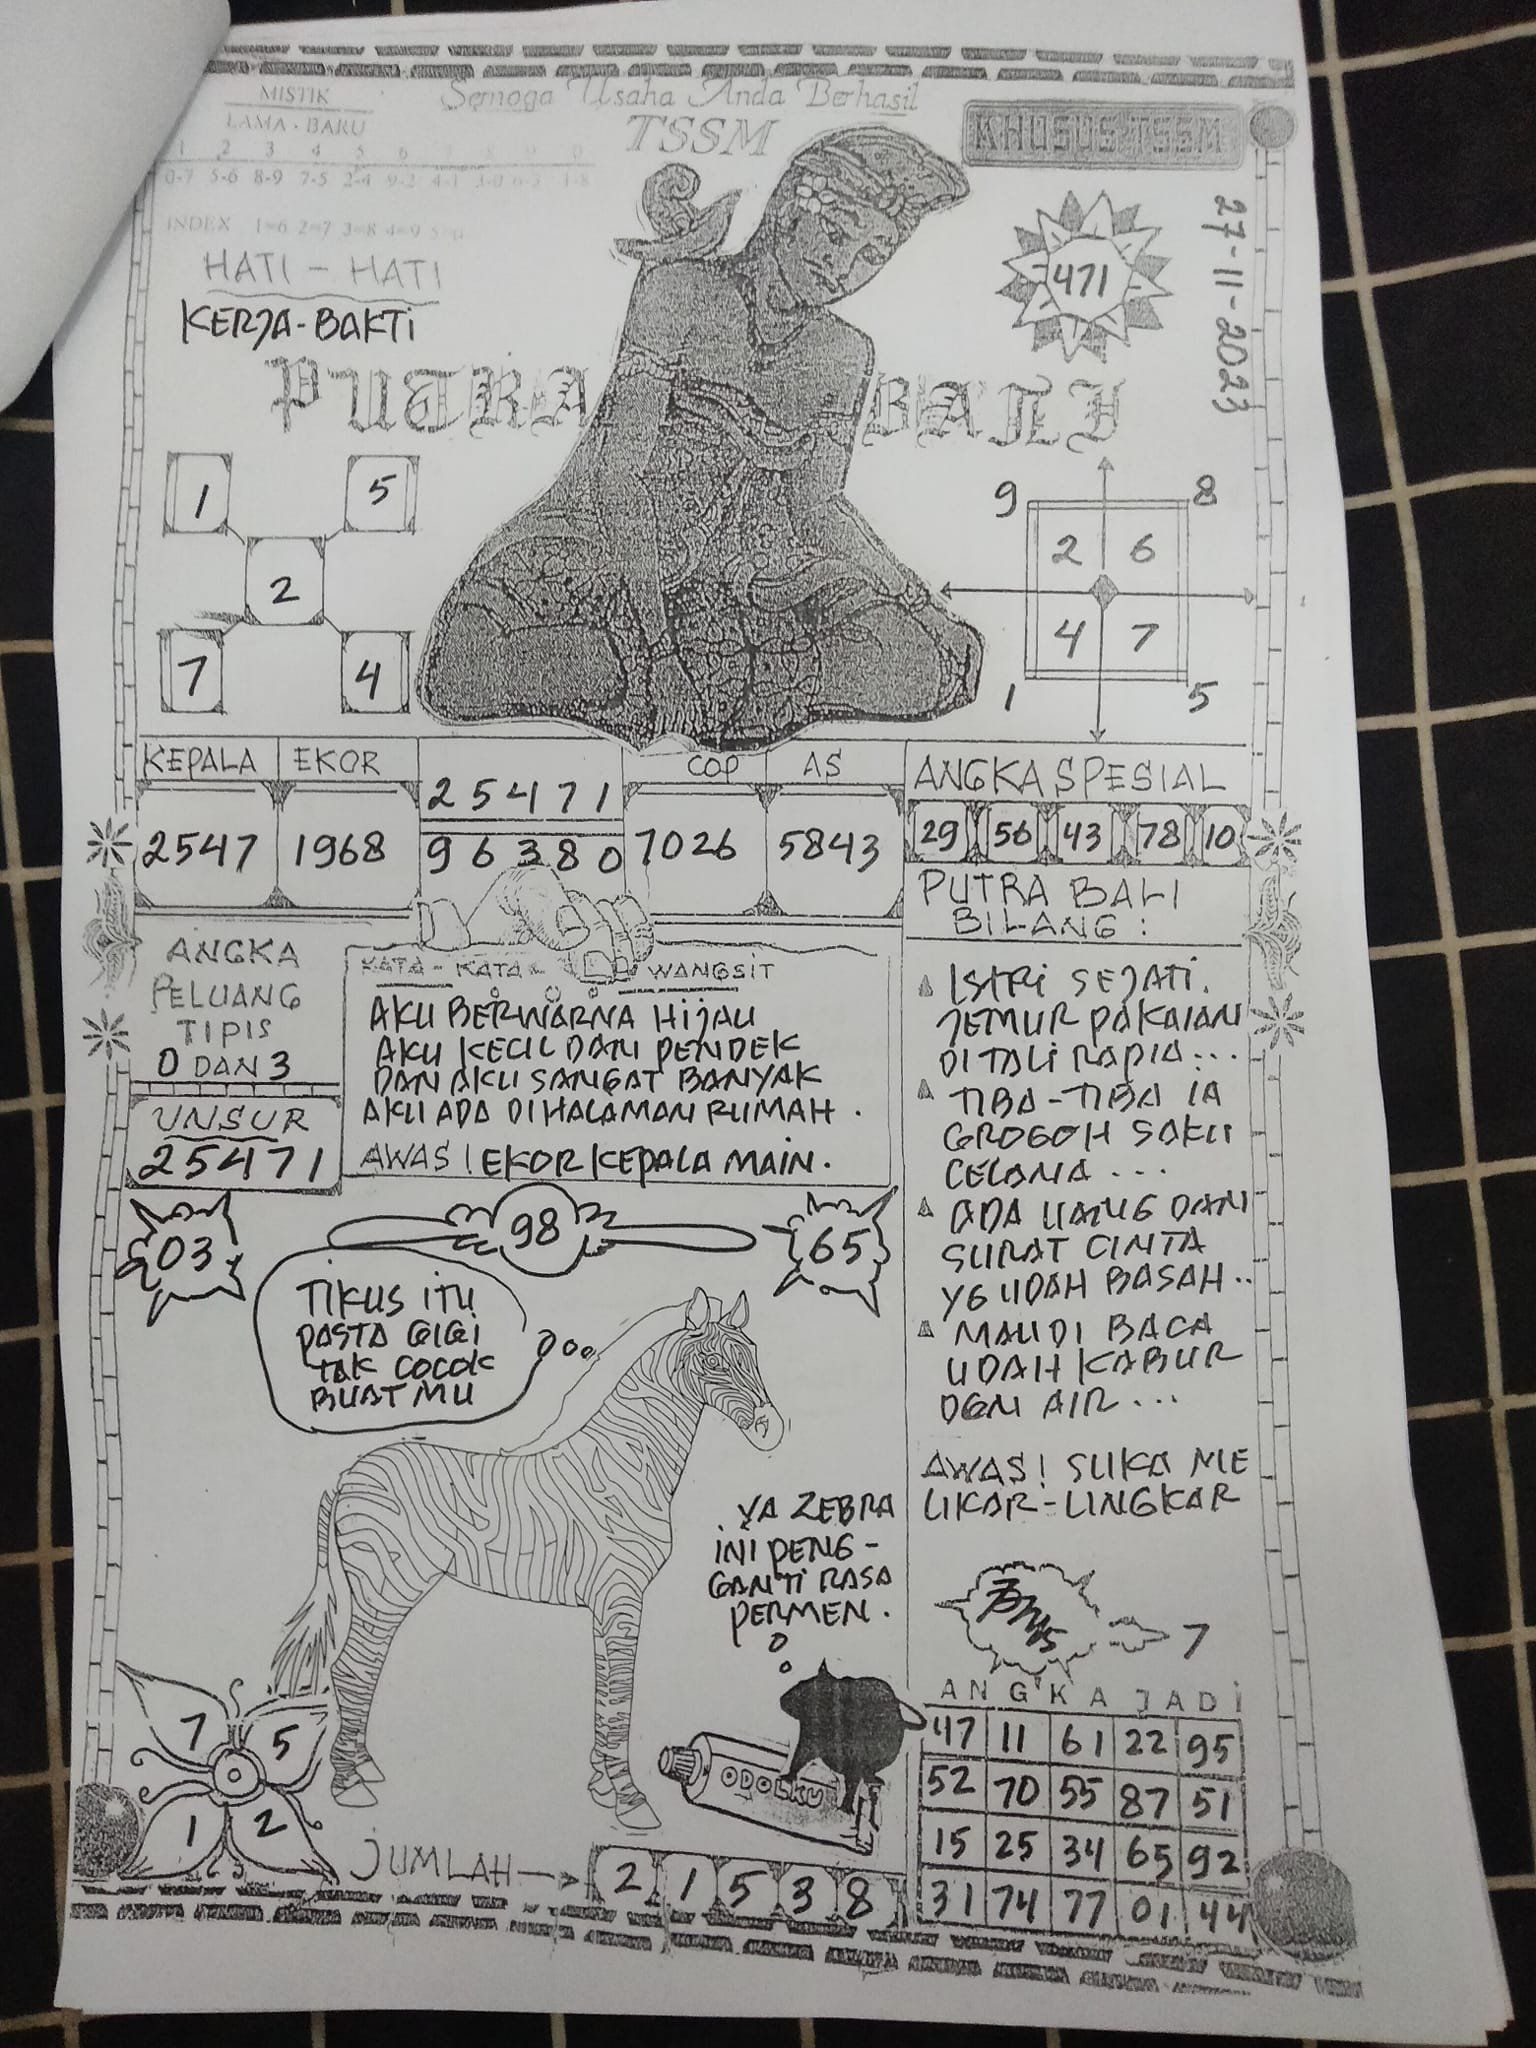 MISTIK
LAMA - BARU
1 2 3 4 5 6
0-7 5-6 8-9 7-5 2-4 9-2 4-1 3-0 6-3 1-8
INDEX 1=6 2=7 3=8 4=9 5=0
Semoga Usaha Anda Berhasil
TSSM
KHUSUS TSSM
27-11-2023
471
HATI - HATI
KERJA-BAKTI
PUTRA BALI
1 5
2
7 4
9 8
2 6
4 7
1 5
KEPALA EKOR
2547 1968
25471
96380
COP AS
7026 5843
ANGKA SPESIAL
29 56 43 78 10
ANGKA
PELUANG
TIPIS
0 DAN 3
UNSUR
25471
KATA - KATA WANGSIT
AKU BERWARNA HIJAU
AKU KECIL DAN PENDEK
DAN AKU SANGAT BANYAK
AKU ADA DI HALAMAN RUMAH .
AWAS ! EKOR KEPALA MAIN.
PUTRA BALI
BILANG :
ISTRI SEJATI.
JEMUR PAKAIAN
DI TALI RAPIA...
TIBA-TIBA IA
GROGOH SAKU
CELANA ...
ADA UANG DAN
SURAT CINTA
YG UDAH BASAH..
MAU DI BACA
UDAH KABUR
DGN AIR ...
AWAS! SUKA ME
LIKAR-LINGKAR
03
98
65
TIKUS ITU
PASTA GIGI
TAK COCOK
BUAT MU
YA ZEBRA
INI PENG-
GANTI RASA
PERMEN .
ODOLKU
7
7 5
1 2
JUMLAH
2 1 5 3 8
ANGKA JADI
47 11 61 22 95
52 70 55 87 51
15 25 34 65 92
31 74 77 01 44